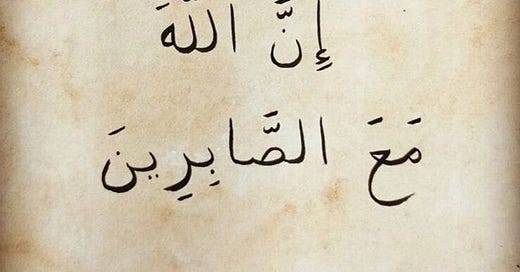 إِنَّ اللَّهَ
مَعَ الصَّابِرِينَ